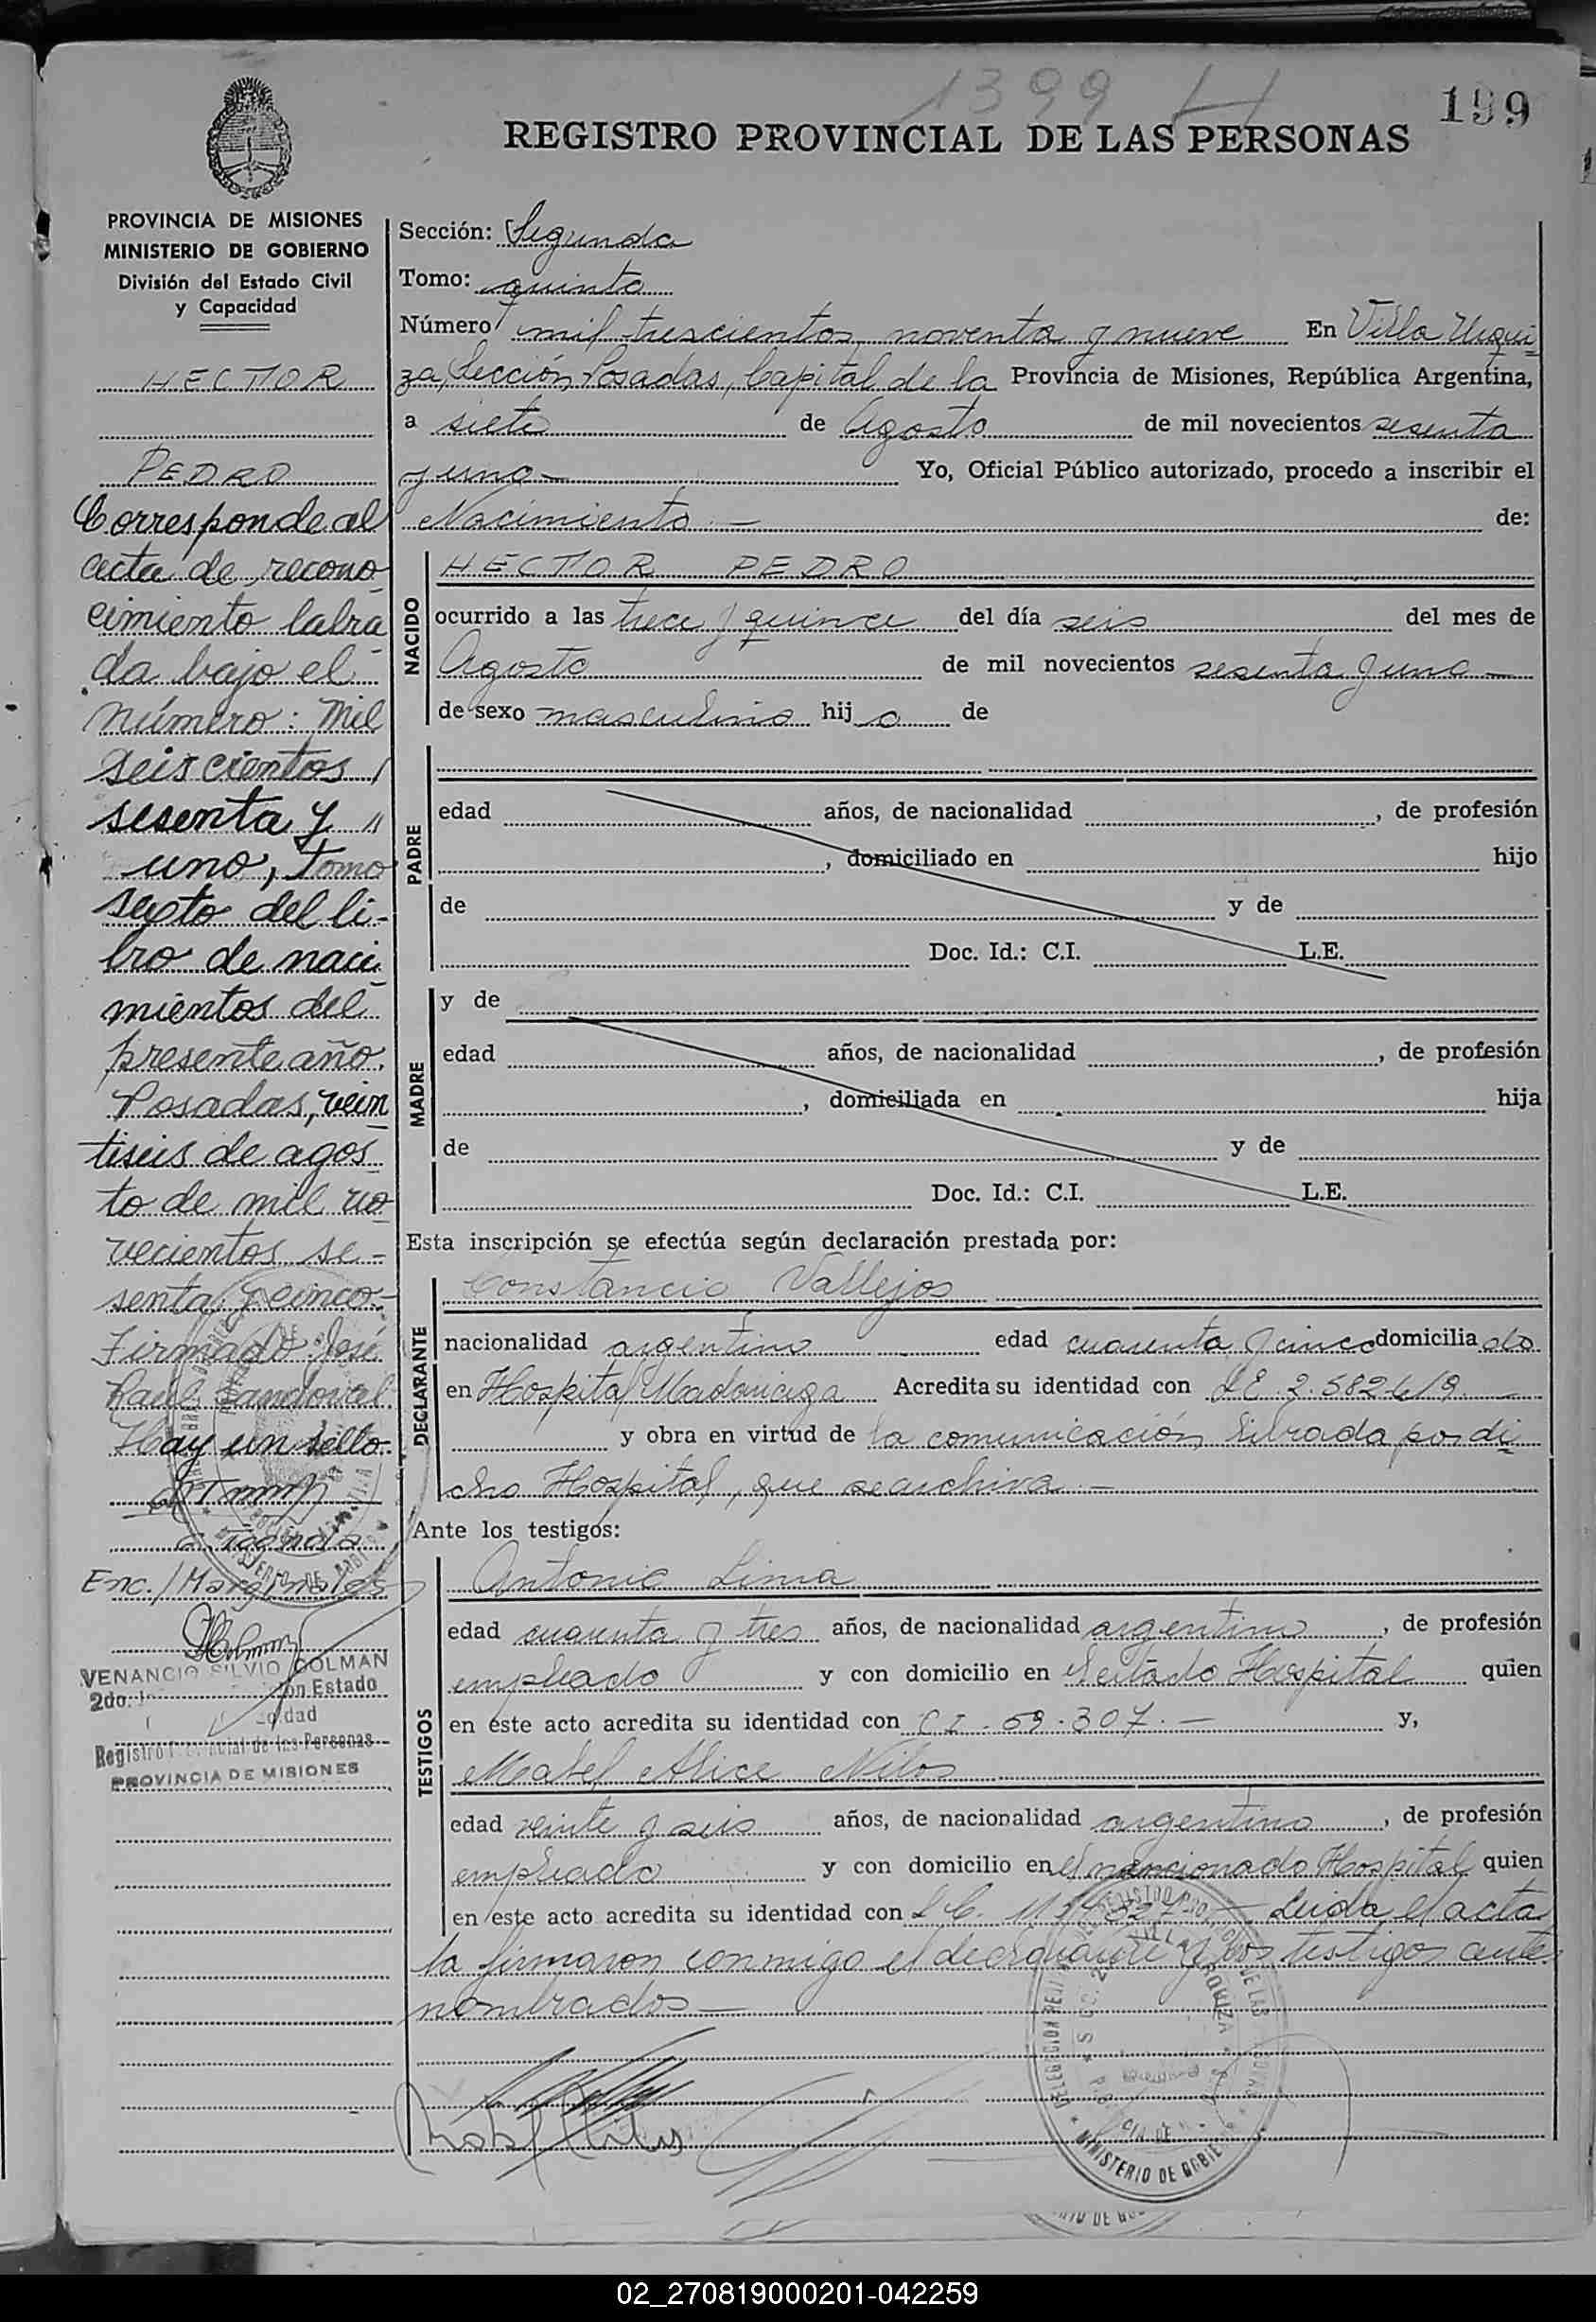 1399 H
199
REGISTRO PROVINCIAL DE LAS PERSONAS
PROVINCIA DE MISIONES
MINISTERIO DE GOBIERNO
División del Estado Civil
y Capacidad
HECTOR
PEDRO
Corresponde al
acta de recono
cimiento labra
da bajo el
número: Mil
seiscientos
sesenta y "
uno, Tomo
sexto del li-
bro de naci
mientos del
presente año.
Posadas, vein
tiseis de agos
to de mil no
vecientos se-
senta y cinco.
Firmado: José
Raúl Sandoval.
Hay un sello.
Enc. / Marginales
VENANCIO SILVIO COLMAN
2do. Estado
Registro Provincial de las Personas
PROVINCIA DE MISIONES
Sección: Segunda
Tomo: quinto
Número mil trescientos noventa y nueve En Villa Urqui
za, Sección Posadas, Capital de la Provincia de Misiones, República Argentina,
a siete de Agosto de mil novecientos sesenta
y uno — Yo, Oficial Público autorizado, procedo a inscribir el
Nacimiento — de:
NACIDO
HECTOR PEDRO
ocurrido a las trece y quince del día seis del mes de
Agosto de mil novecientos sesenta y uno —
de sexo masculino hijo de
PADRE
edad años, de nacionalidad , de profesión
, domiciliado en hijo
de y de
Doc. Id.: C.I. L.E.
MADRE
y de
edad años, de nacionalidad , de profesión
, domiciliada en hija
de y de
Doc. Id.: C.I. L.E.
Esta inscripción se efectúa según declaración prestada por:
DECLARANTE
Constancio Vallejos
nacionalidad argentino edad cuarenta y cinco domiciliado
en Hospital Madariaga Acredita su identidad con LE. 2.582.619 —
y obra en virtud de la comunicación librada por di
cho Hospital, que se archiva. —
Ante los testigos:
TESTIGOS
Antonio Lima
edad cuarenta y tres años, de nacionalidad argentino , de profesión
empleado y con domicilio en el citado Hospital quien
en este acto acredita su identidad con C I . 59.307. — y,
Mabel Alice Nilos
edad veinte y seis años, de nacionalidad argentina , de profesión
empleada y con domicilio en el mencionado Hospital quien
en este acto acredita su identidad con L C. Leida el acta
la firmaron conmigo el declarante y los testigos ante
nombrados —
MINISTERIO DE GOBIE
02_270819000201-042259